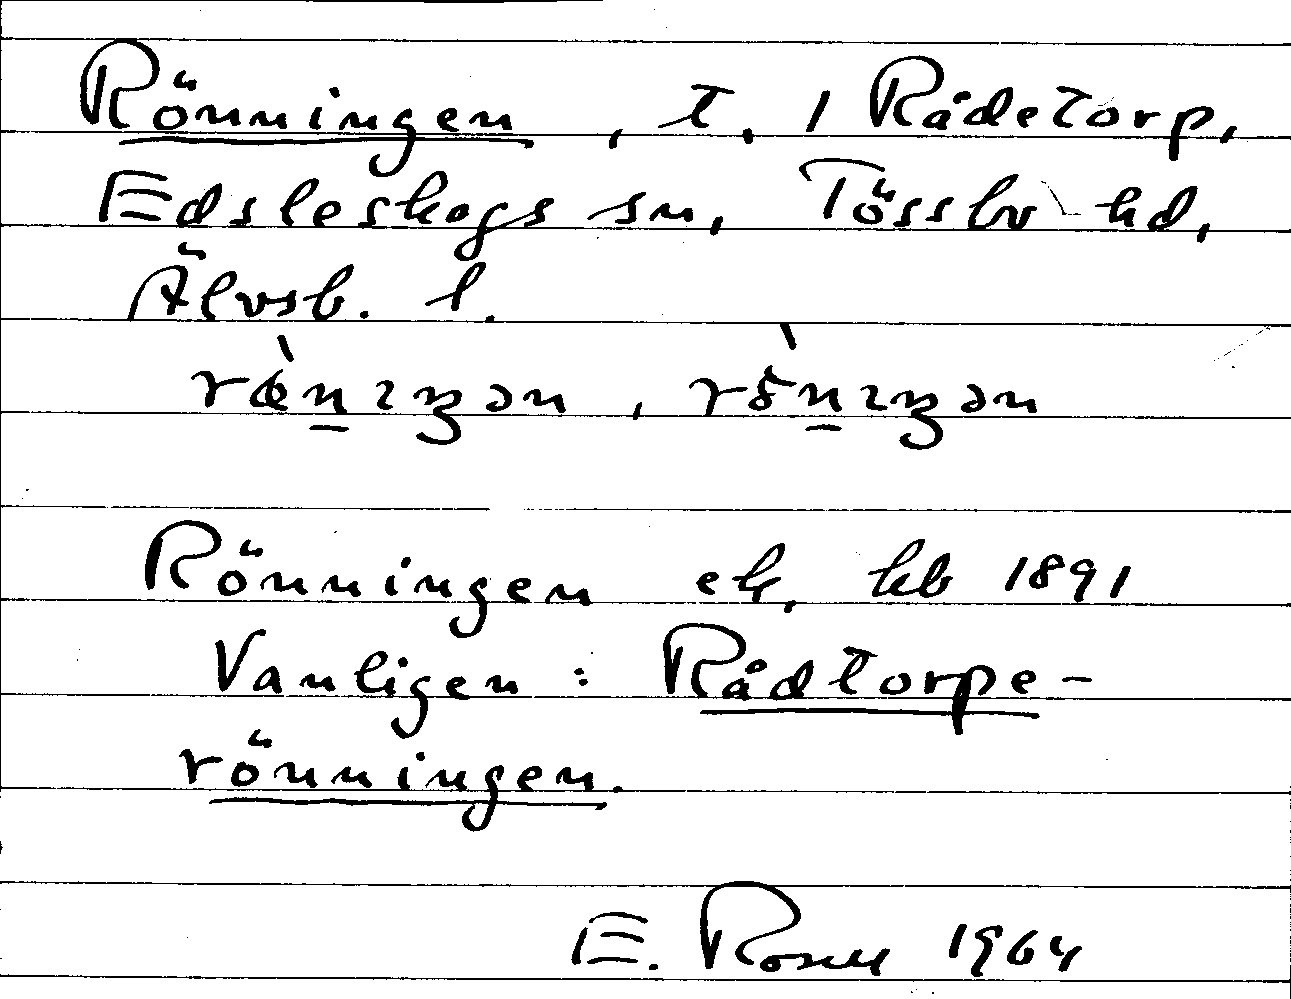 Rönningen, t. / Rådetorp,
Edsleskogs sn, Tössbo hd,
Älvsb. l.
ræ̀nɪŋən, rö̀nɪŋən
Rönningen ek, kb 1891
Vanligen: Rådtorpe-
rönningen.
E. Rosell 1964